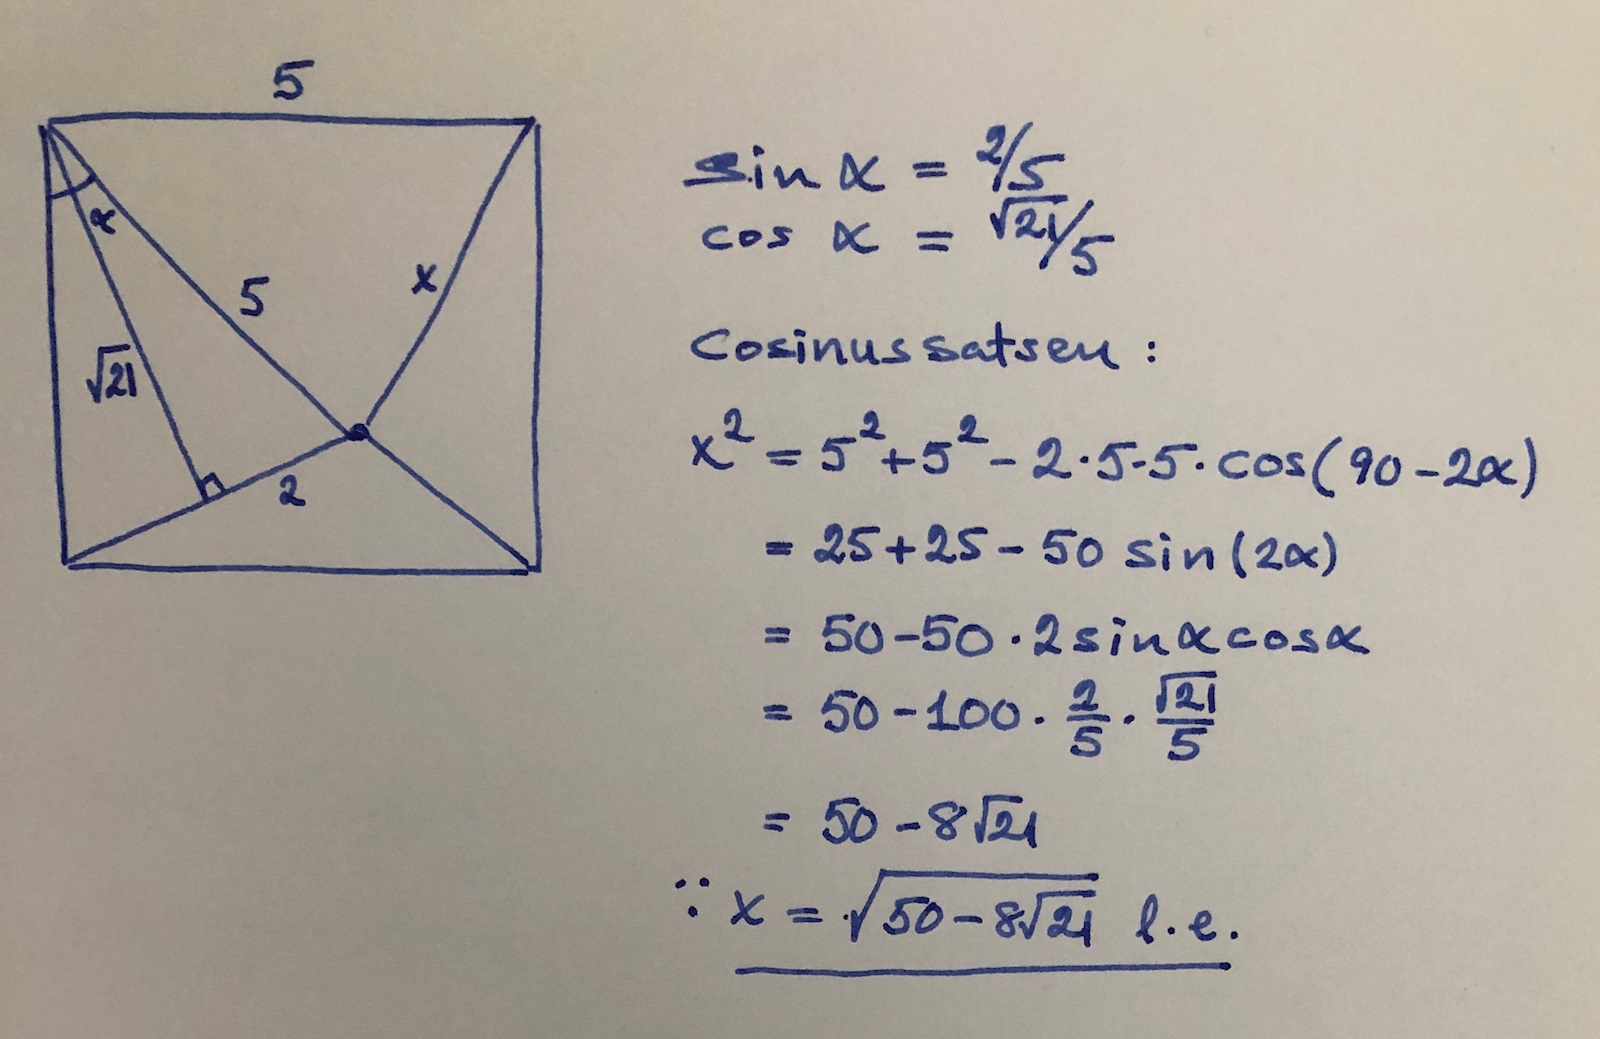 5
α
5
x
√21
2
sin α = 2/5
cos α = √21/5
Cosinussatsen :
x² = 5² + 5² - 2·5·5·cos(90-2α)
= 25+25-50 sin(2α)
= 50-50·2sinαcosα
= 50-100· 2/5 · √21/5
= 50-8√21
∵ x = √(50-8√21) l.e.